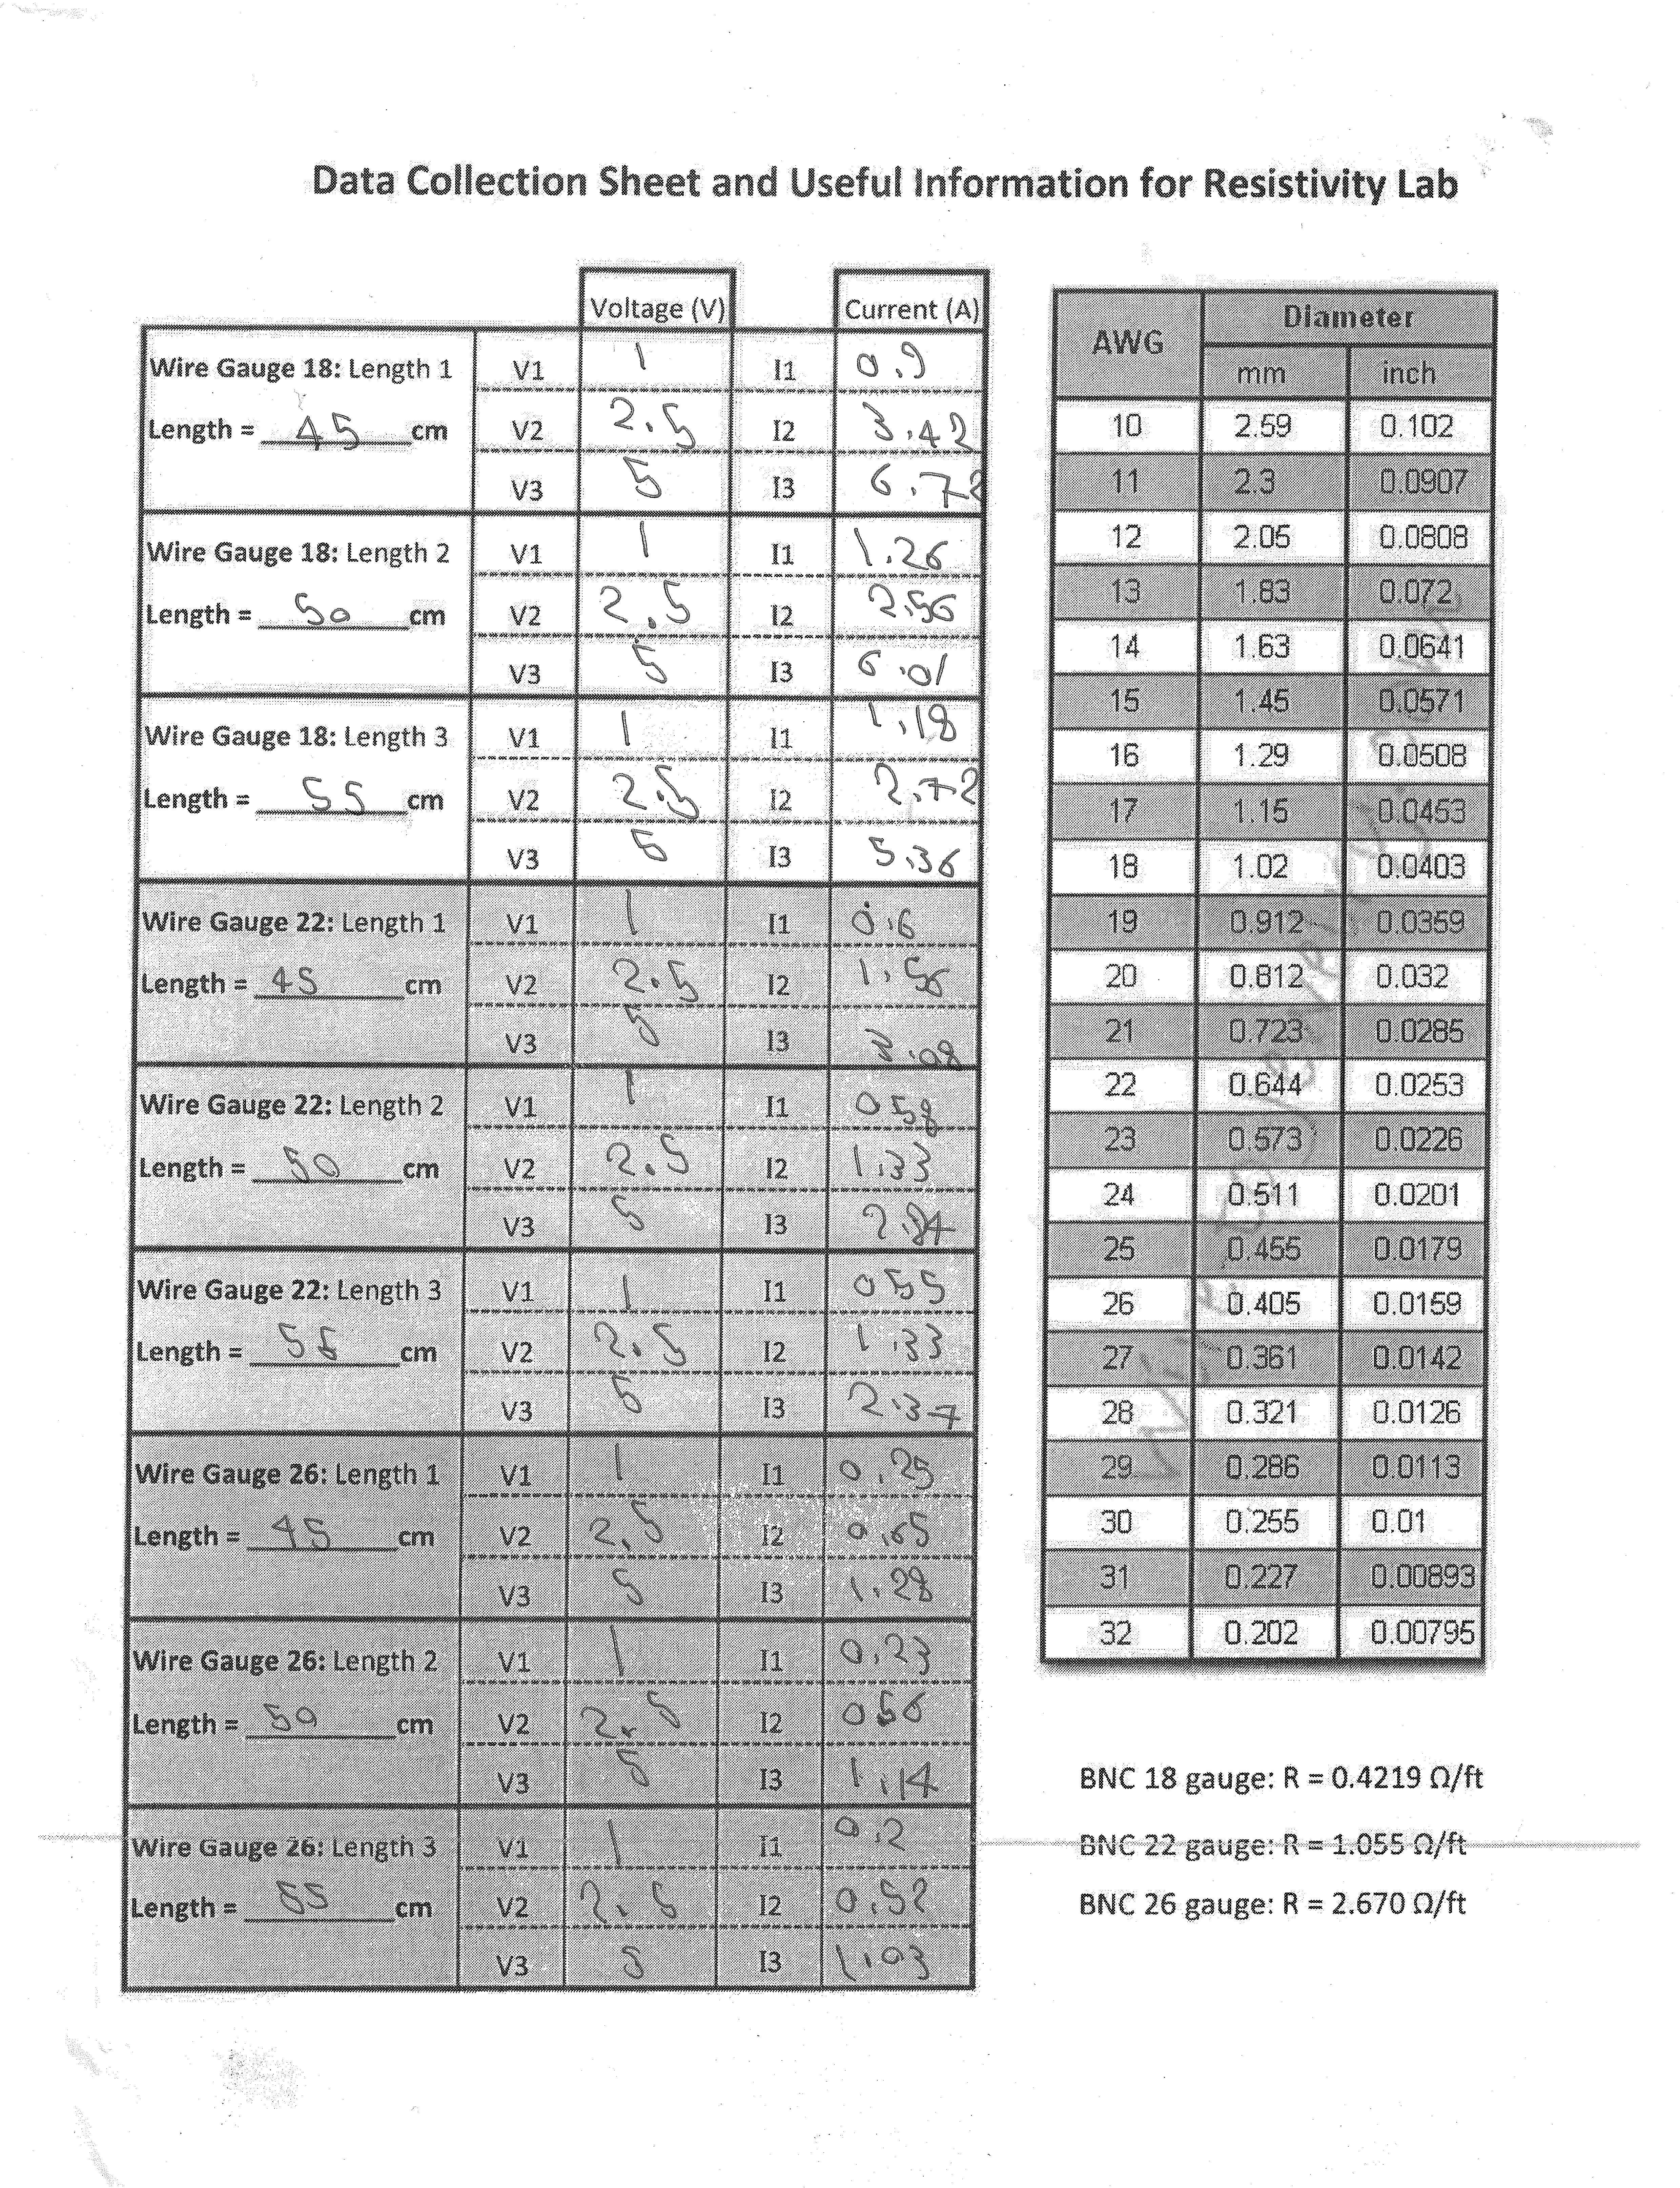 Data Collection Sheet and Useful Information for Resistivity Lab
Voltage (V) Current (A)
Wire Gauge 18: Length 1 V1 1 I1 0.9
Length = 45 cm V2 2.5 I2 3.42
V3 5 I3 6.72
Wire Gauge 18: Length 2 V1 1 I1 1.26
Length = 50 cm V2 2.5 I2 2.56
V3 5 I3 6.01
Wire Gauge 18: Length 3 V1 1 I1 1.18
Length = 55 cm V2 2.5 I2 2.72
V3 5 I3 5.36
Wire Gauge 22: Length 1 V1 1 I1 0.6
Length = 45 cm V2 2.5 I2 1.56
V3 5 I3 3.08
Wire Gauge 22: Length 2 V1 1 I1 0.58
Length = 50 cm V2 2.5 I2 1.33
V3 5 I3 2.84
Wire Gauge 22: Length 3 V1 1 I1 0.55
Length = 55 cm V2 2.5 I2 1.33
V3 5 I3 2.37
Wire Gauge 26: Length 1 V1 1 I1 0.25
Length = 45 cm V2 2.5 I2 0.65
V3 5 I3 1.28
Wire Gauge 26: Length 2 V1 1 I1 0.23
Length = 50 cm V2 2.5 I2 0.56
V3 5 I3 1.14
Wire Gauge 26: Length 3 V1 1 I1 0.2
Length = 55 cm V2 2.5 I2 0.52
V3 5 I3 1.03
AWG Diameter
mm inch
10 2.59 0.102
11 2.3 0.0907
12 2.05 0.0808
13 1.83 0.072
14 1.63 0.0641
15 1.45 0.0571
16 1.29 0.0508
17 1.15 0.0453
18 1.02 0.0403
19 0.912 0.0359
20 0.812 0.032
21 0.723 0.0285
22 0.644 0.0253
23 0.573 0.0226
24 0.511 0.0201
25 0.455 0.0179
26 0.405 0.0159
27 0.361 0.0142
28 0.321 0.0126
29 0.286 0.0113
30 0.255 0.01
31 0.227 0.00893
32 0.202 0.00795
BNC 18 gauge: R = 0.4219 Ω/ft
BNC 22 gauge: R = 1.055 Ω/ft
BNC 26 gauge: R = 2.670 Ω/ft